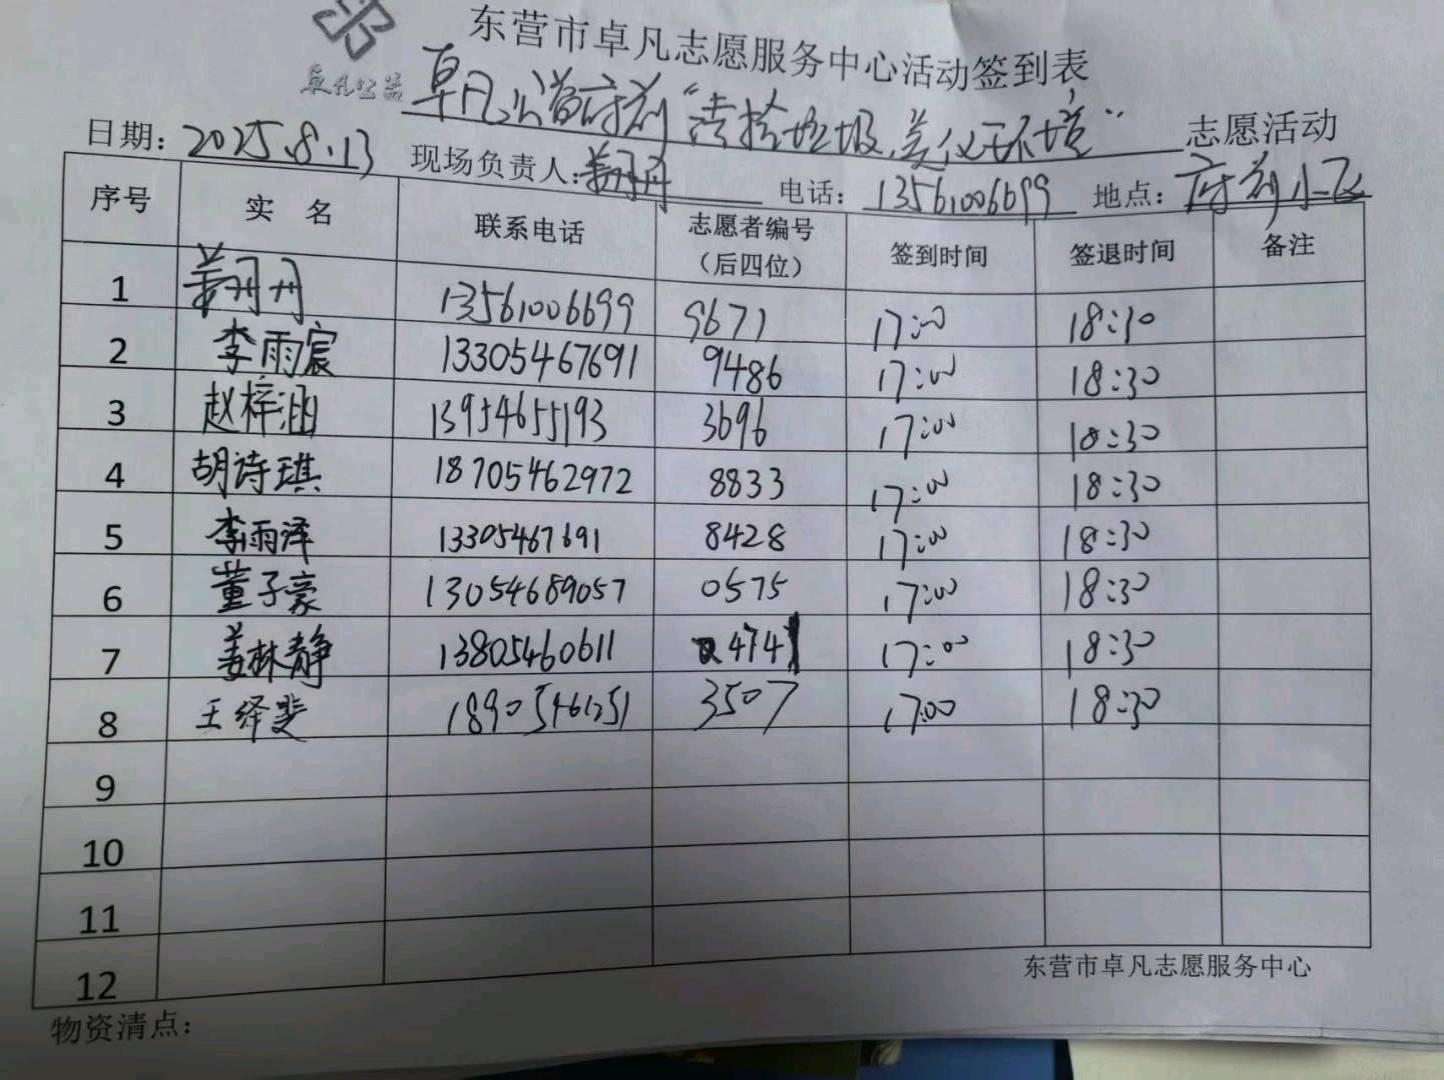 东营市卓凡志愿服务中心活动签到表
卓凡公益
卓凡公益府前“清捡垃圾,美化环境” 志愿活动
日期: 2025.8.13 现场负责人: 姜丹丹 电话: 13561006699 地点: 府前小区
序号 实 名 联系电话 志愿者编号(后四位) 签到时间 签退时间 备注
1 姜丹丹 13561006699 9671 17:00 18:30
2 李雨宸 13305467691 9486 17:00 18:30
3 赵梓涵 13954655193 3696 17:00 18:30
4 胡诗琪 18705462972 8833 17:00 18:30
5 李雨泽 13305467691 8428 17:00 18:30
6 董子豪 13054689057 0575 17:00 18:30
7 姜林静 13805460611 4741 17:00 18:30
8 王绎斐 18905461251 3507 17:00 18:30
9
10
11
12
东营市卓凡志愿服务中心
物资清点: